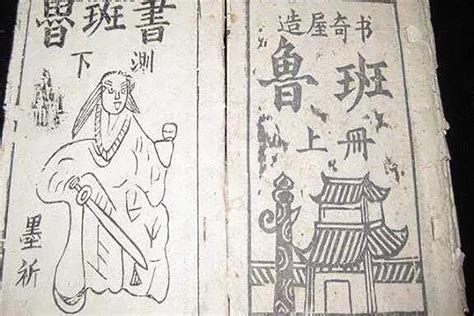 魯班書
下測
墨祈
造屋奇书
魯班
上冊